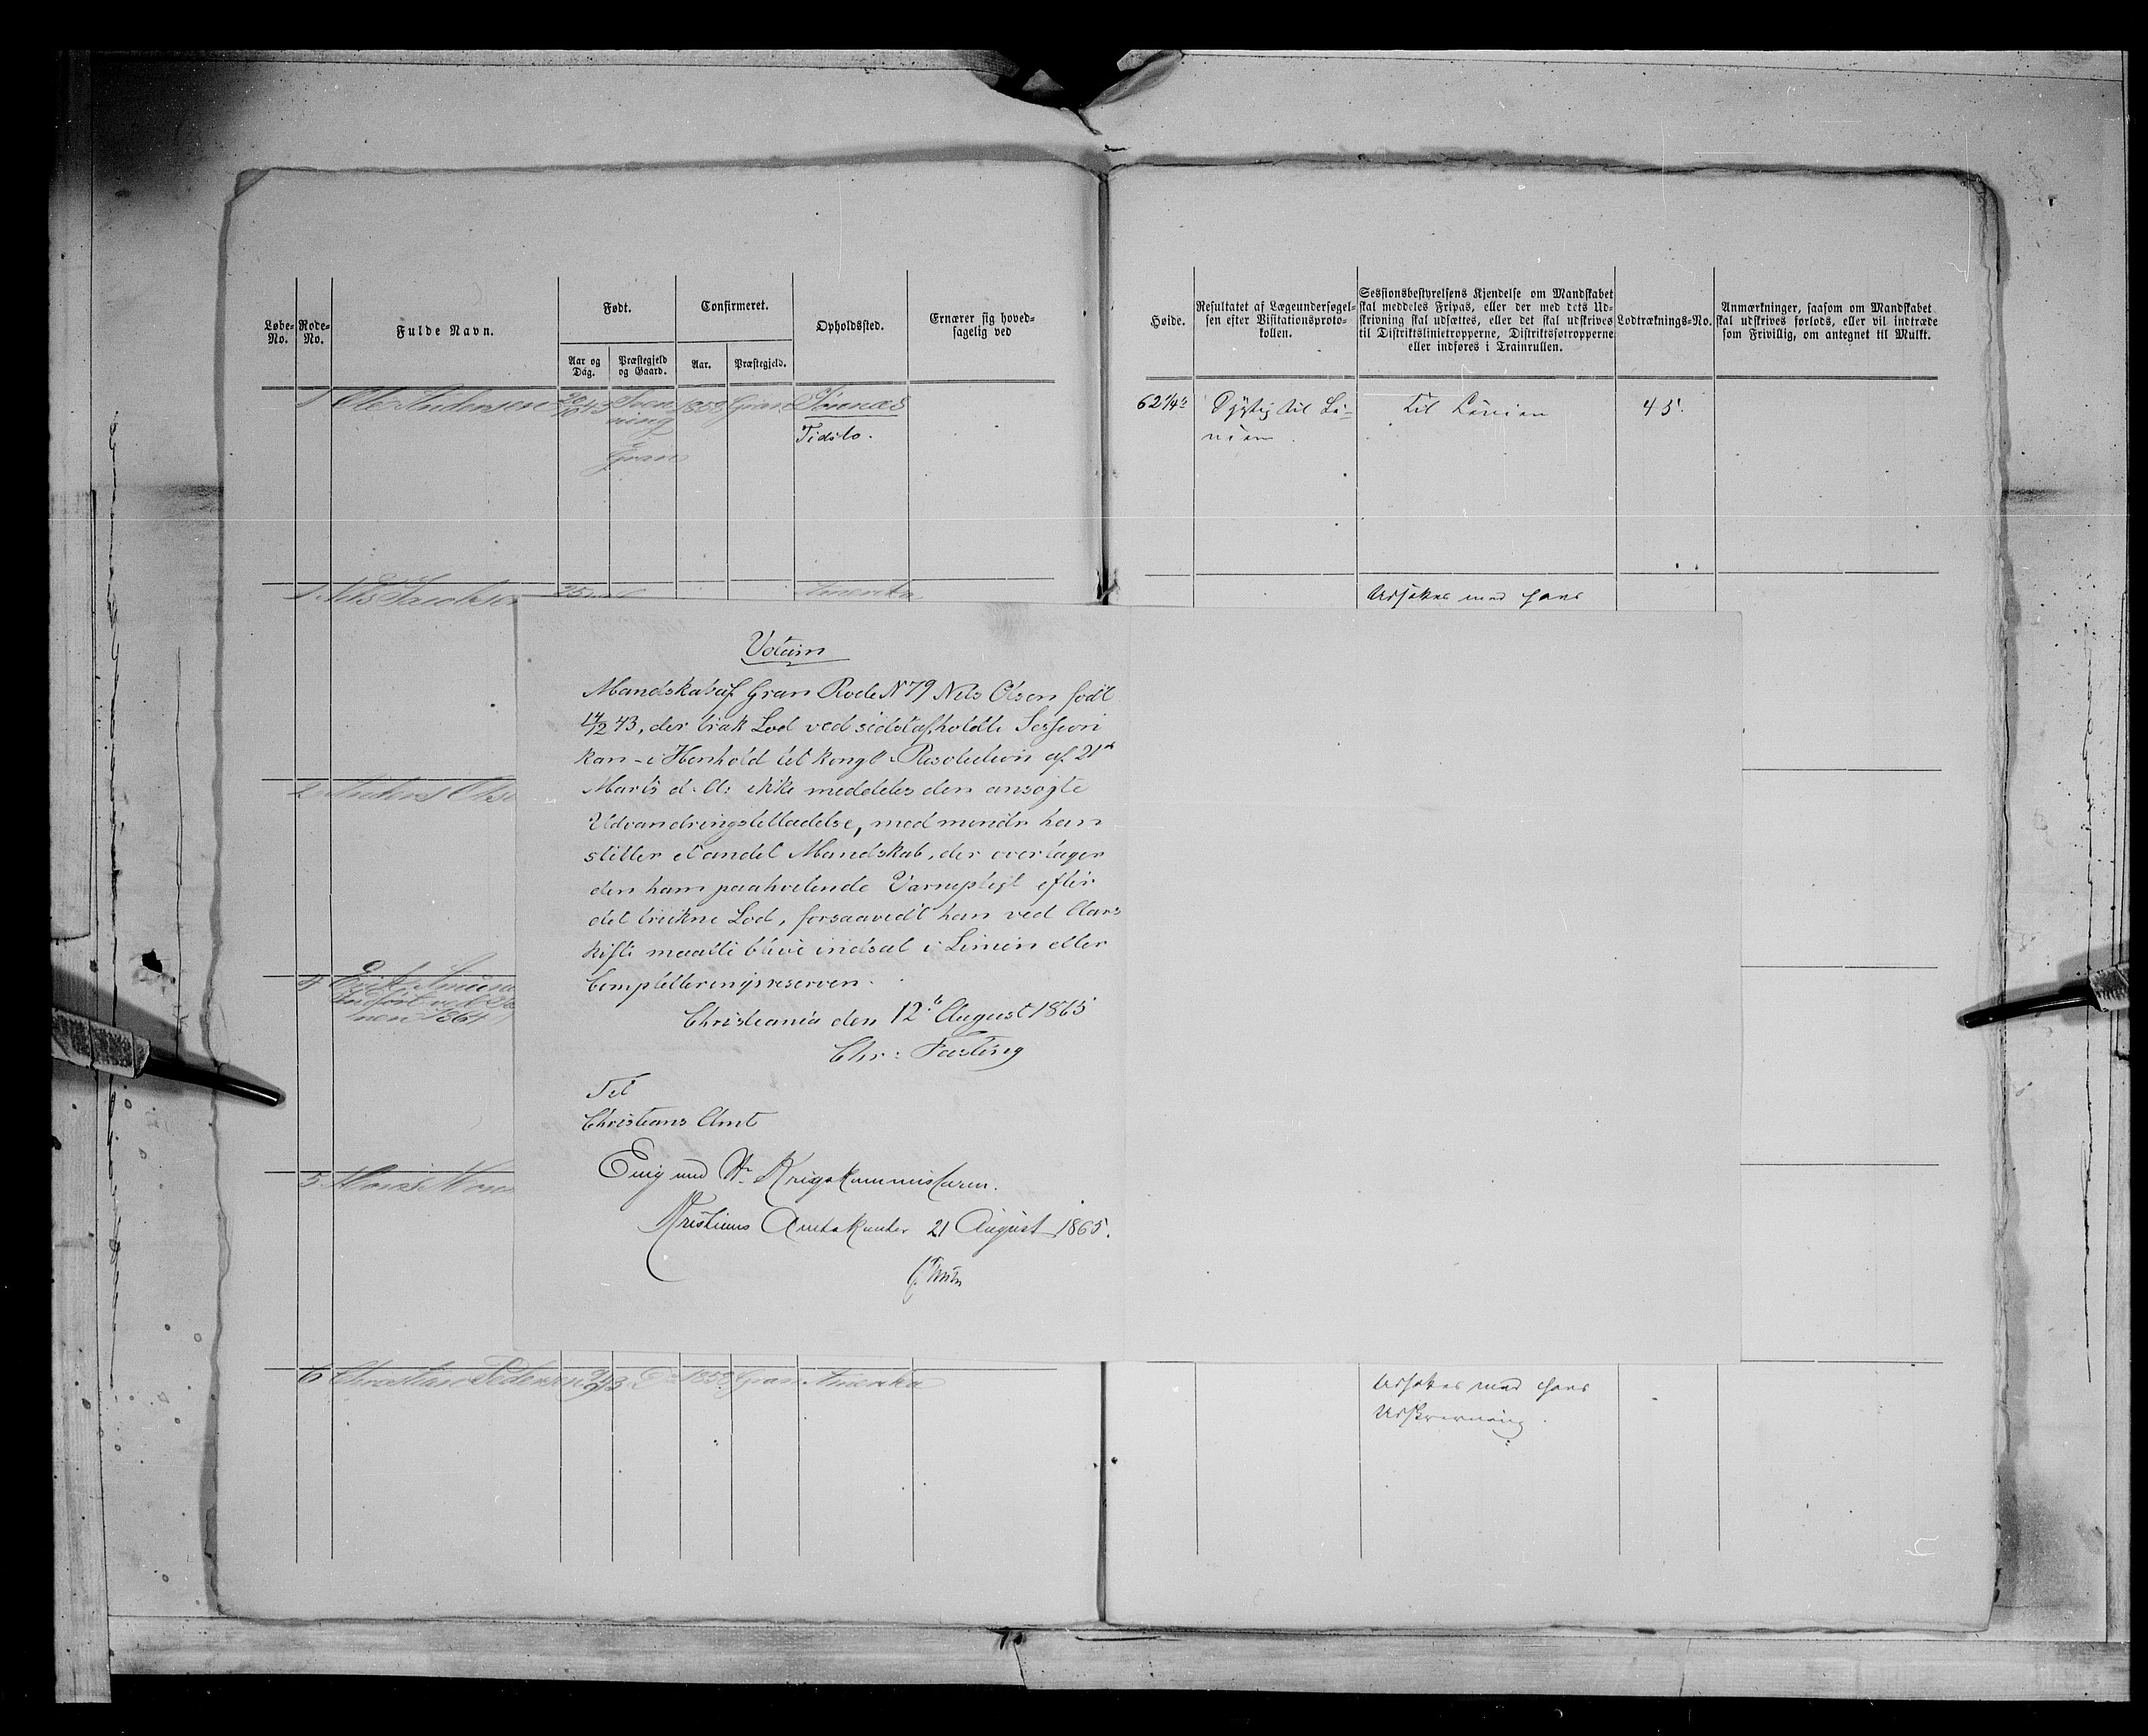 Løbe-No.
Rode-No.
Fulde Navn.
Født.
Aar og Dag.
Præstegjeld og Gaard.
Confirmeret.
Aar.
Præstegjeld.
Opholdssted.
Ernærer sig hoved-
sagelig ved
Høide.
Resultatet af Lægeundersøgel-
sen efter Visitationsproto-
kollen.
Sessionsbestyrelsens Kjendelse om Mandskabet
skal meddeles Fripas, eller der med dets Ud-
skrivning skal udsættes, eller det skal udskrives
til Distriktslinietropperne, Distriktsfotropperne
eller indføres i Trainrullen.
Lodtræknings-No.
Anmærkninger, saasom om Mandskabet
skal udskrives forlods, eller vil indtræde
som Frivillig, om antegnet til Mulkt.
1 Ole Andersen 43 1858 Gran
Gran
Tidslo.
62 1/4" Dygtig til Li-
nien.
til Linien
45.
1 Nils Jacobsen 25 Amerika
Udsættes med hans
2 Anders Olse
4 Erik
1864
5 Hans
6 Christian Pedersen 43 Do 1858 Gran Amerika
Udsættes med hans
Udskrivning.
Votum
Mandskab af Gran Rode N 79 Nils Olsen født
14/2 43, der trak Lod ved sidstafholdte Session
kan i Henhold til kongl. Resolution af 21de
Marts d. A. ikke meddeles den ansøgte
Udvandringstilladelse, med mindre han
stiller et andet Mandskab, der overtager
den ham paahvilende Værnepligt efter
det trukne Lod, forsaavidt han ved Aars
kifte maatte blive indsat i Linien eller
Completteringsreserven.
Christiania den 12te August 1865
Chr: Fasting
Til
Christians Amt
Enig med Hr. Krigskommissæren.
Kristians Amtskontor 21 August 1865.